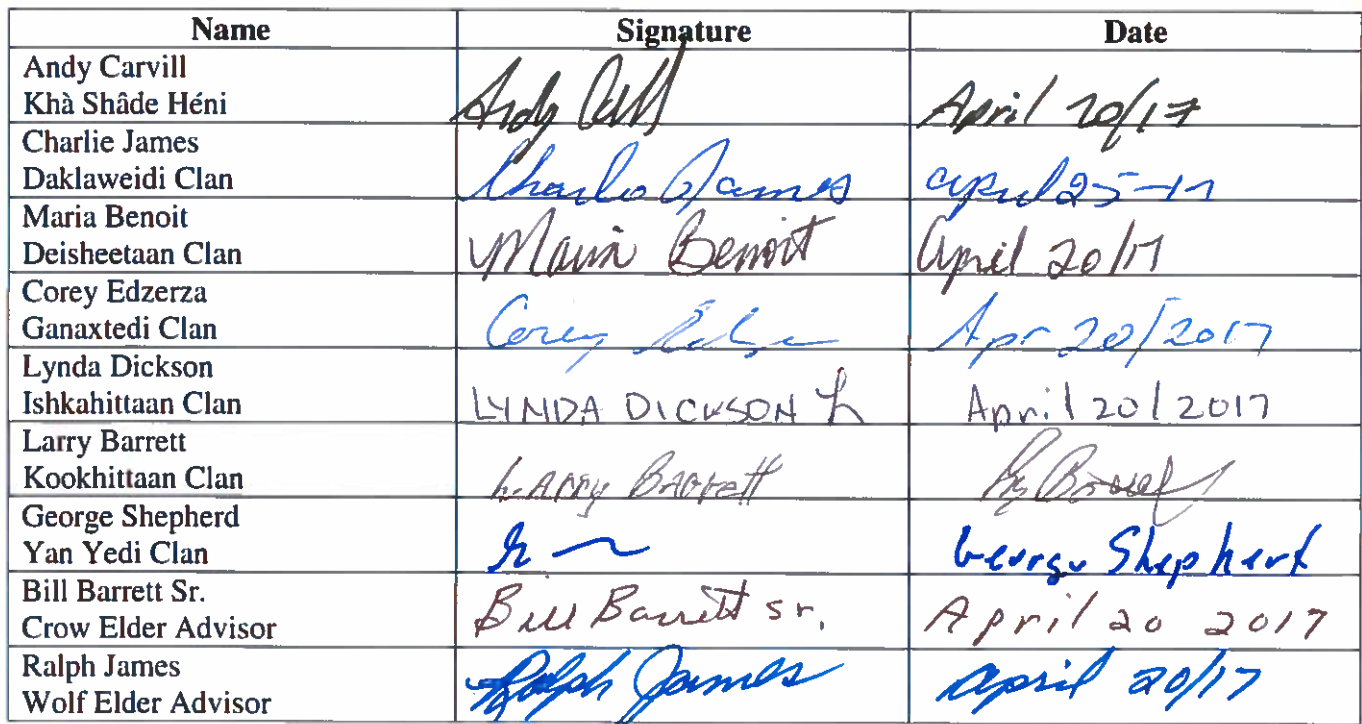 Name Signature Date
Andy Carvill
Khà Shâde Héni
Andy April 20/17
Charlie James
Daklaweidi Clan
Charlie James april 25-17
Maria Benoit
Deisheetaan Clan
Maria Benoit April 20/17
Corey Edzerza
Ganaxtedi Clan
Corey Apr 20/2017
Lynda Dickson
Ishkahittaan Clan
LYNDA DICKSON April 20/2017
Larry Barrett
Kookhittaan Clan
Larry Barrett
George Shepherd
Yan Yedi Clan
George Shepherd
Bill Barrett Sr.
Crow Elder Advisor
Bill Barrett sr. April 20 2017
Ralph James
Wolf Elder Advisor
Ralph James April 20/17